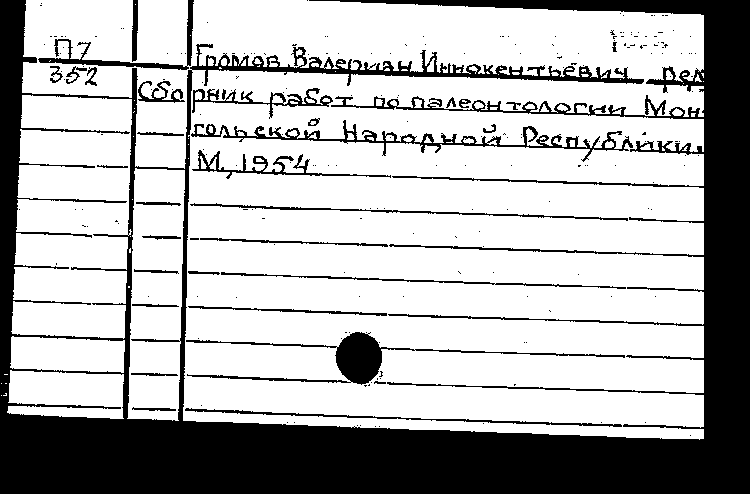 П7
352
Громов, Валериан Иннокентьевич, ред
Сборник работ по палеонтологии Мон-
гольской Народной Республики.
М., 1954